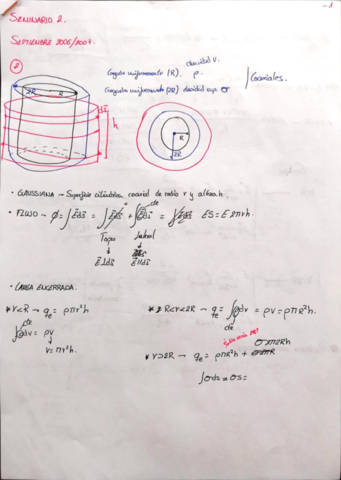 -1
SEMINARIO 2.
SEPTIEMBRE 2006/2007.
2
Cargado uniformemente (R). densidad V. ρ.
Cargado uniformemente (2R) densidad sup. σ
Coaxiales.
2R R dS h
R
2R
• GAUSSIANA → Superficie cilíndrica, coaxial de radio r y altura h.
• FLUJO → ∅ = ∫ E dS = ∫ E dS + ∫ E dS = ES = E 2πrh.
Tapas lateral
E ⊥ dS E ∥ dS
• CARGA ENCERRADA.
* r<R → qe = ρπr²h
∫ρdv = ρv
v = πr²h.
* R<r<2R → qe = ∫ρdv = ρv = ρπR²h.
cte
* r>2R → qe = ρπR²h + σπ2Rh
∫σds = σs =